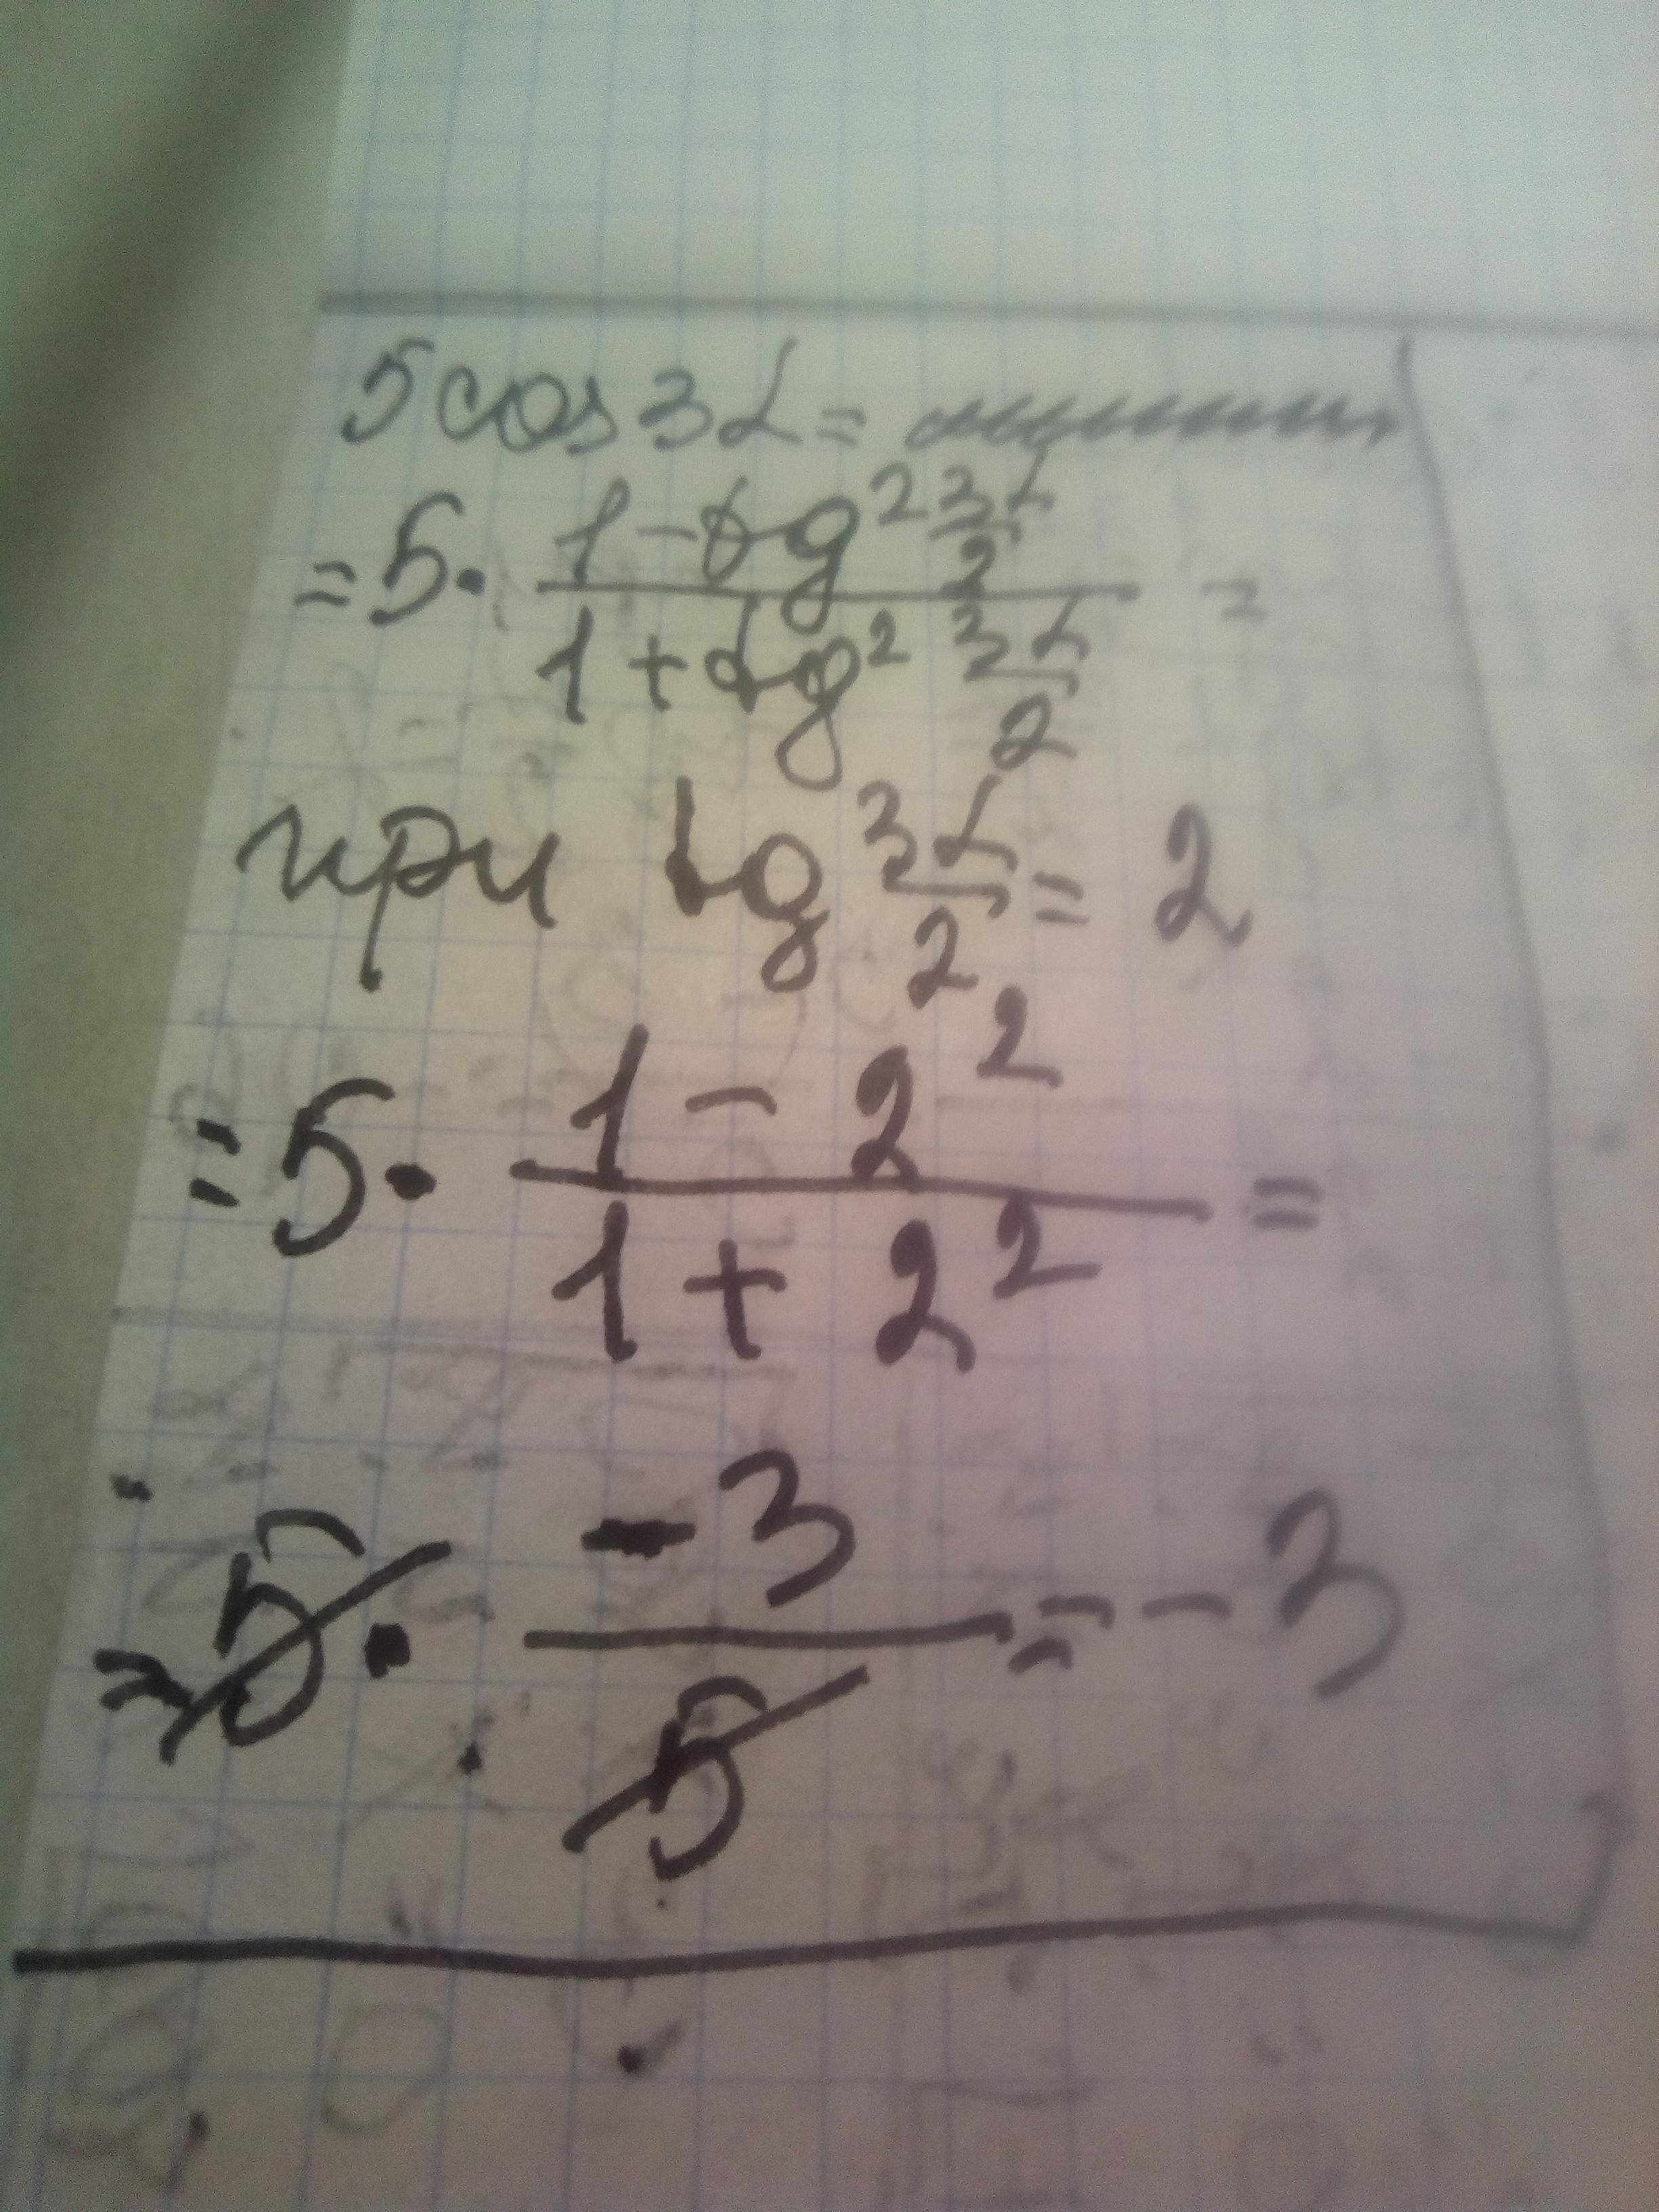 5cos3α=
=5·(1-tg²3α/2)/(1+tg²3α/2)=
при tg3α/2=2
=5·(1-2²)/(1+2²)=
=5·-3/5=-3